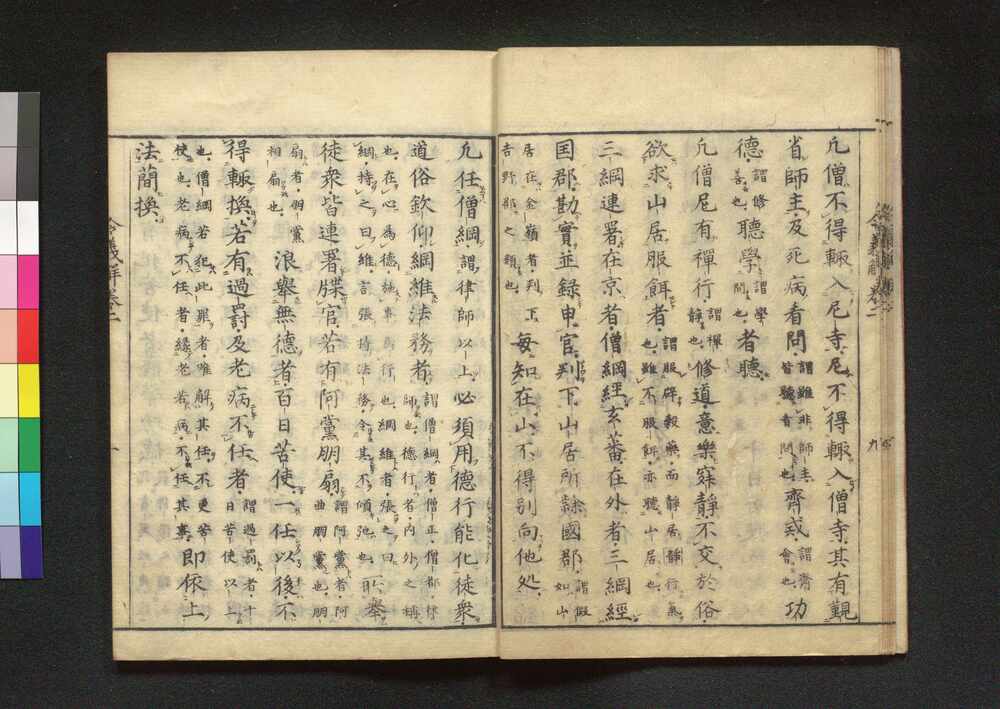 凢僧不得輙入尼寺尼不得輙入僧寺其有覲
省師主及死病看問謂雖非師主皆聽看問也齊戒謂齋會也功
德謂修善也聽學謂學問也者聽
凢僧尼有禪行謂禪靜也修道意樂寂靜不交於俗
欲求山居服餌者謂服辟穀藥而靜居靜行氣也雖不服餌亦聽山居也
三綱連署在京者僧綱經玄蕃在外者三綱經
国郡勘實並録申官判下山居所隸國郡謂假如山
居在金嶺者判下吉野郡之類也每知在山不得別向他処
凢任僧綱謂律師以上必須用德行能化徒衆
道俗欽仰綱維法務者謂僧綱者僧正僧都律師也德行者內外之稱
也在心為德施事為行也綱維者張之曰綱持之曰維言張持法務令其不傾弛也舉
徒衆皆連署牒官若有阿黨朋扇謂阿黨者阿曲朋黨也朋
扇者朋黨相扇也浪舉無德者百日苦使一任以後不
得輙換若有過罰及老病不任者謂過罰者十日苦使以上
也僧綱若犯此罪者唯解其任不更苦使也老病不任者縁老若病不任其事即依上
法簡換
令義解卷二
九